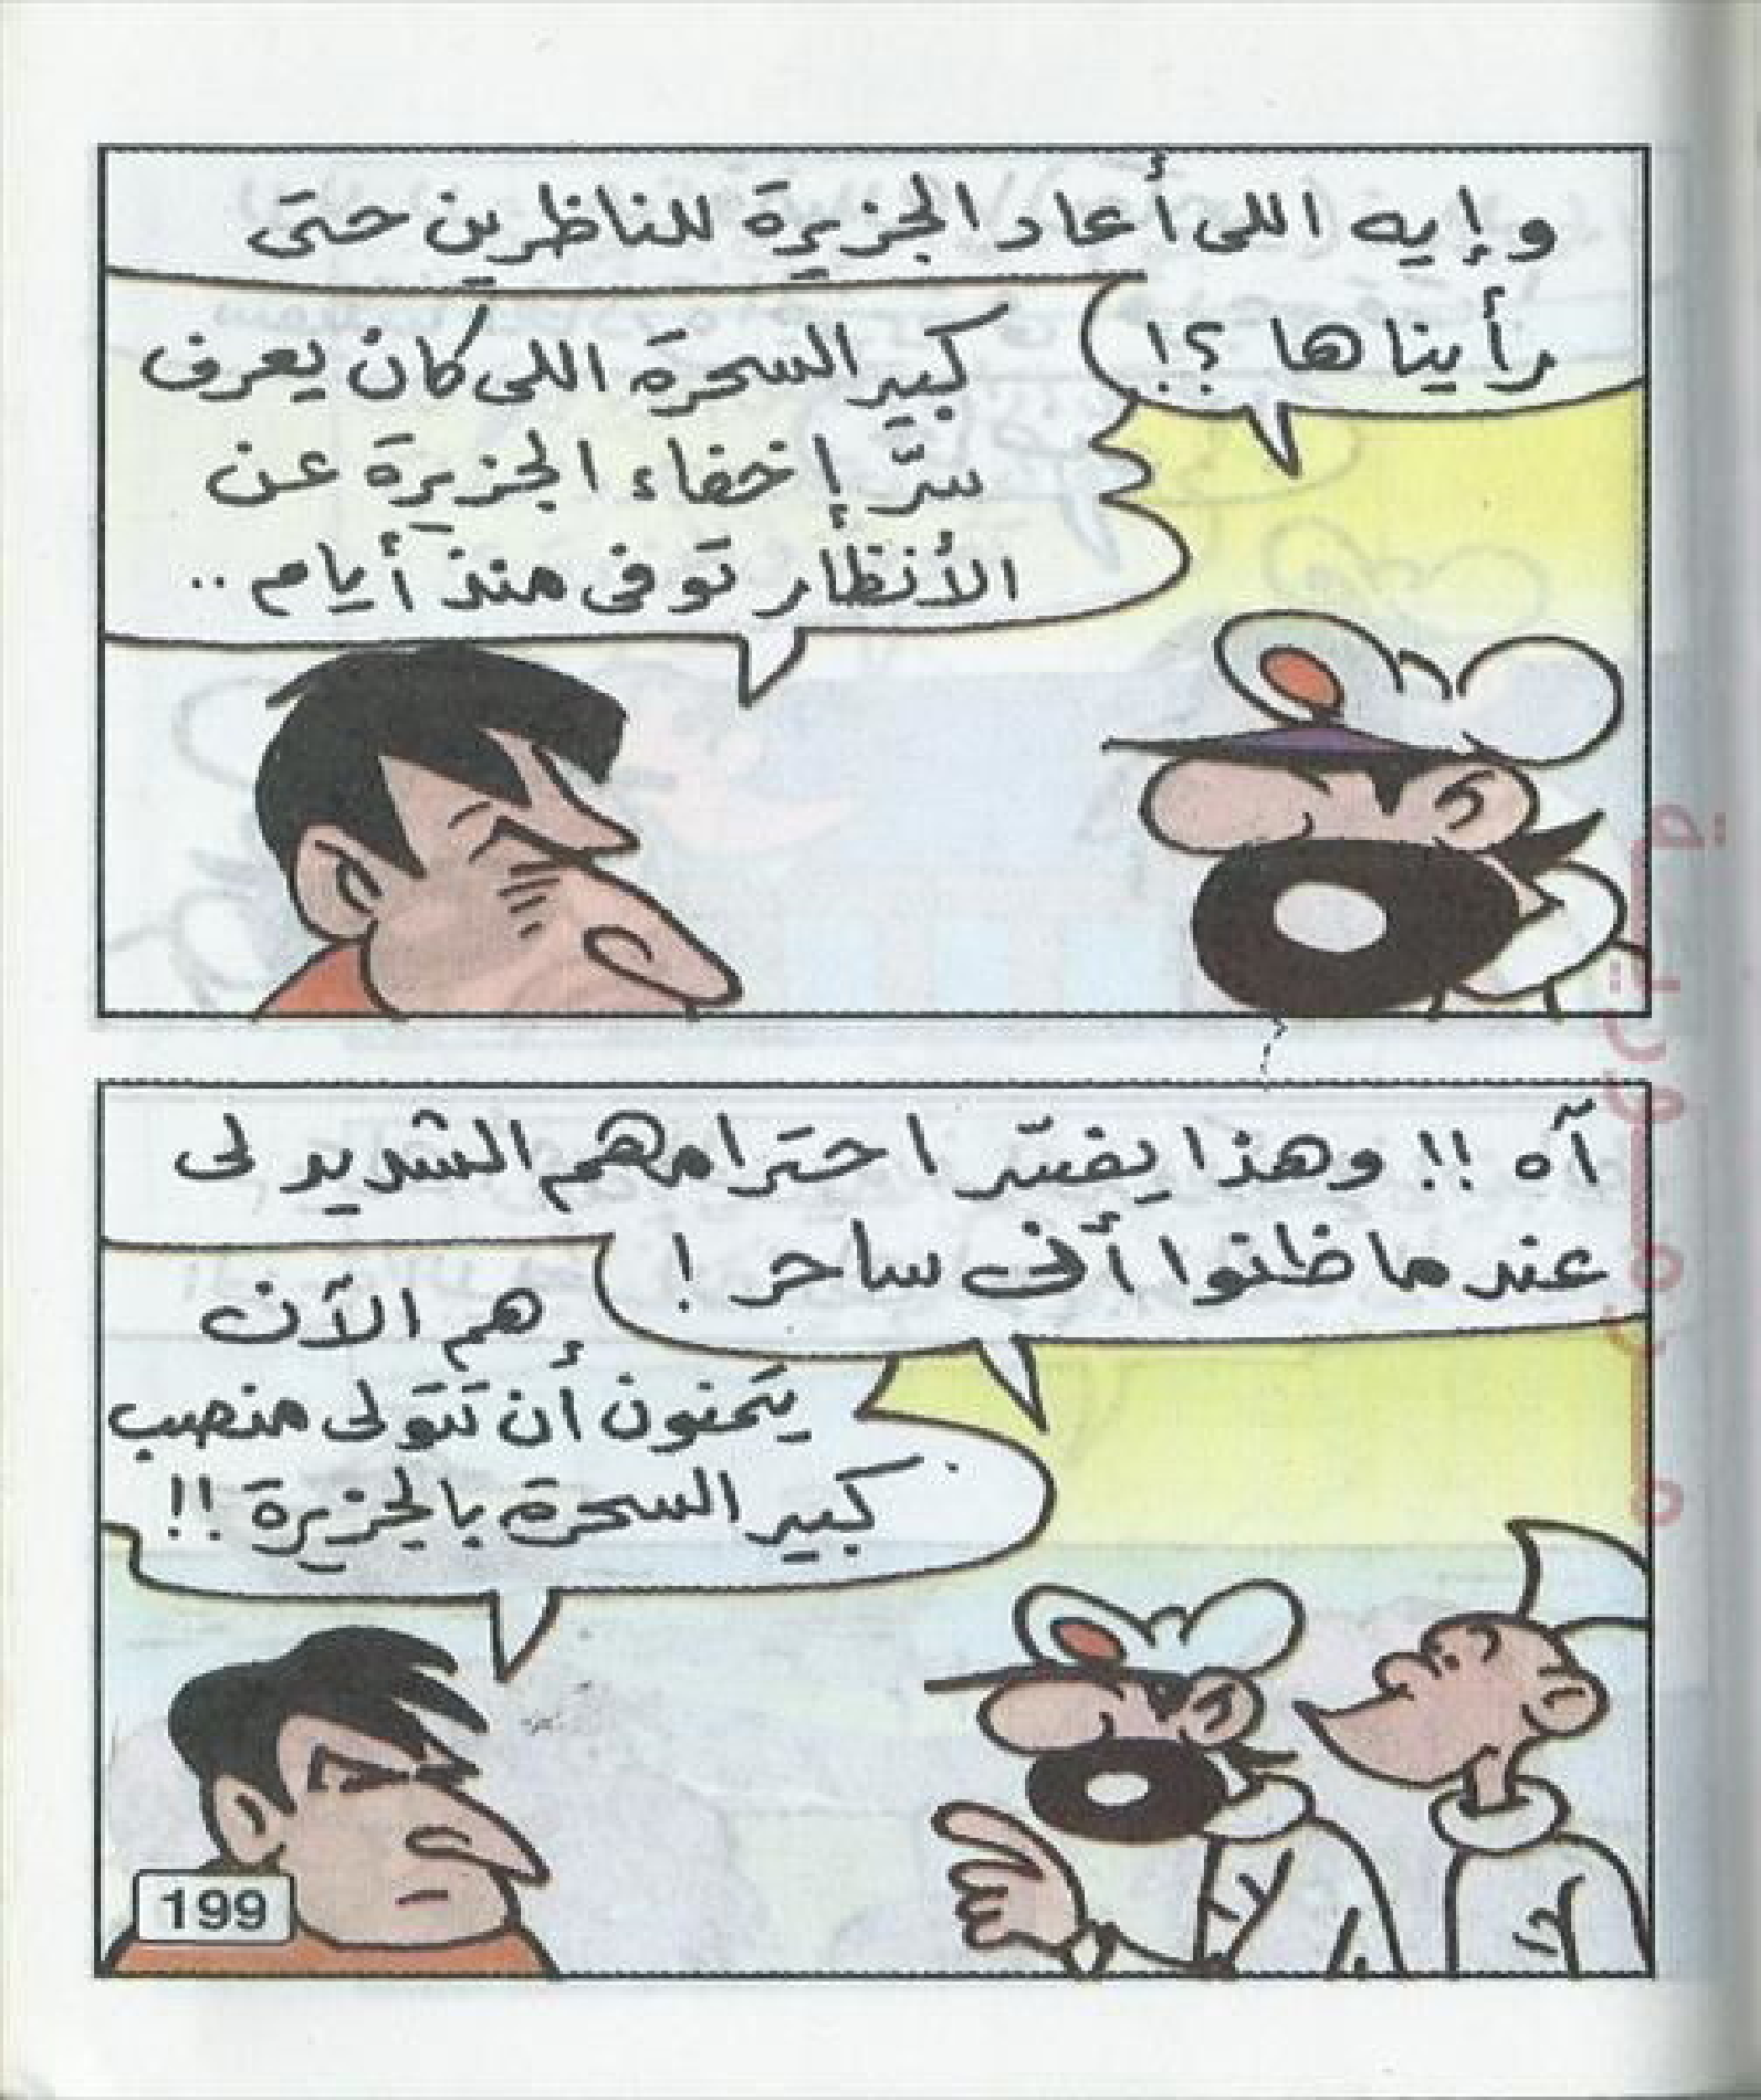 وإيه اللى أعاد الجزيرة للناظرين حتى
رأيناها ؟!
كبير السحرة اللى كان يعرف
سرّ إخفاء الجزيرة عن
الأنظار توفى منذ أيام ..
آه !! وهذا يفسّر احترامهم الشديد لى
عندما ظنوا أنى ساحر !
هم الآن
يتمنون أن تتولى منصب
كبير السحرة بالجزيرة !!
199